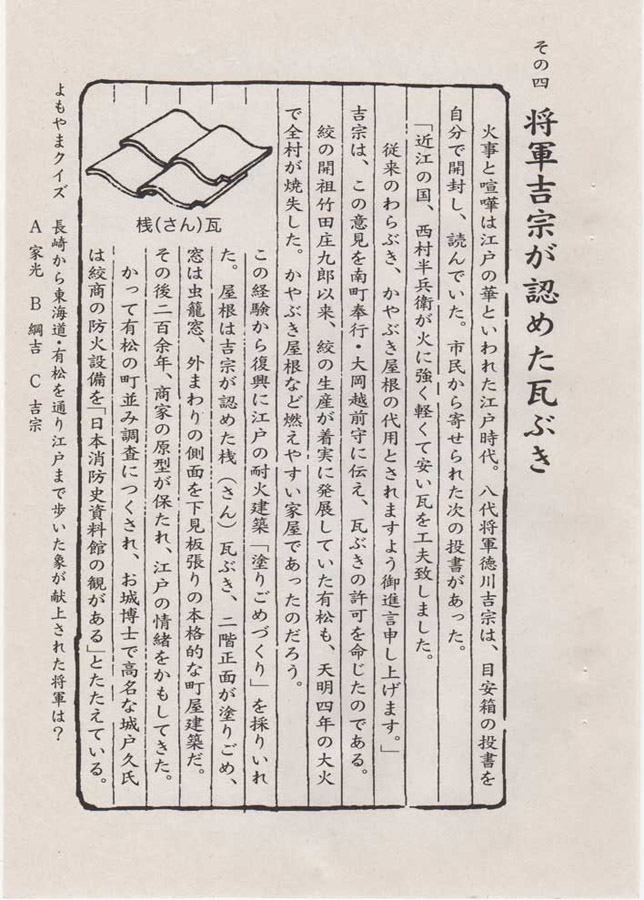 その四
将軍吉宗が認めた瓦ぶき
火事と喧嘩は江戸の華といわれた江戸時代。八代将軍徳川吉宗は、目安箱の投書を
自分で開封し、読んでいた。市民から寄せられた次の投書があった。
「近江の国、西村半兵衛が火に強く軽くて安い瓦を工夫致しました。
従来のわらぶき、かやぶき屋根の代用とされますよう御進言申し上げます。」
吉宗は、この意見を南町奉行・大岡越前守に伝え、瓦ぶきの許可を命じたのである。
絞の開祖竹田庄九郎以来、絞の生産が着実に発展していた有松も、天明四年の大火
で全村が焼失した。かやぶき屋根など燃えやすい家屋であったのだろう。
この経験から復興に江戸の耐火建築「塗りごめづくり」を採りいれ
た。屋根は吉宗が認めた桟（さん）瓦ぶき、二階正面が塗りごめ、
窓は虫籠窓、外まわりの側面を下見板張りの本格的な町屋建築だ。
その後二百余年、商家の原型が保たれ、江戸の情緒をかもしてきた。
かって有松の町並み調査につくされ、お城博士で高名な城戸久氏
は絞商の防火設備を「日本消防史資料館の観がある」とたたえている。
桟(さん)瓦
よもやまクイズ　長崎から東海道・有松を通り江戸まで歩いた象が献上された将軍は？
A 家光　B 綱吉　C 吉宗